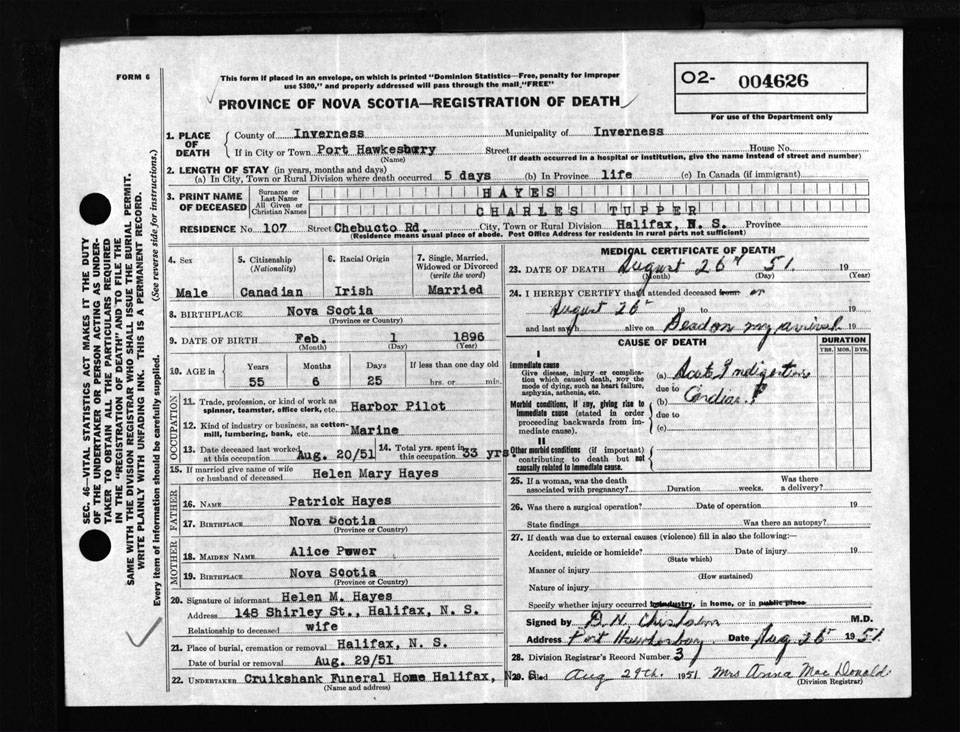 FORM 6
This form if placed in an envelope, on which is printed "Dominion Statistics—Free, penalty for improper
use $300," and properly addressed will pass through the mail "FREE"
PROVINCE OF NOVA SCOTIA—REGISTRATION OF DEATH
02- 004626
For use of the Department only
SEC. 46—VITAL STATISTICS ACT MAKES IT THE DUTY
OF THE UNDERTAKER OR PERSON ACTING AS UNDER-
TAKER TO OBTAIN ALL THE PARTICULARS REQUIRED
IN THE "REGISTRATION OF DEATH" AND TO FILE THE
SAME WITH THE DIVISION REGISTRAR WHO SHALL ISSUE THE BURIAL PERMIT.
WRITE PLAINLY WITH UNFADING INK. THIS IS A PERMANENT RECORD.
Every item of Information should be carefully supplied. (See reverse side for instructions.)
1. PLACE OF DEATH
County of Inverness Municipality of Inverness
If in City or Town Port Hawkesbury Street House No.
(Name) (If death occurred in a hospital or institution, give the name instead of street and number)
2. LENGTH OF STAY (in years, months and days)
(a) In City, Town or Rural Division where death occurred 5 days (b) In Province life (c) In Canada (if immigrant)
3. PRINT NAME OF DECEASED
Surname or Last Name HAYES
All Given or Christian Names CHARLES TUPPER
RESIDENCE No. 107 Street Chebucto Rd. City, Town or Rural Division Halifax, N. S. Province
(Residence means usual place of abode. Post Office Address for residents in rural parts not sufficient)
4. Sex Male
5. Citizenship (Nationality) Canadian
6. Racial Origin Irish
7. Single, Married, Widowed or Divorced (write the word) Married
8. BIRTHPLACE Nova Scotia
(Province or Country)
9. DATE OF BIRTH Feb. 1 1896
(Month) (Day) (Year)
10. AGE in Years Months Days If less than one day old
55 6 25 hrs. or min.
OCCUPATION
11. Trade, profession, or kind of work as spinner, teamster, office clerk, etc. Harbor Pilot
12. Kind of industry or business, as cotton-mill, lumbering, bank, etc. Marine
13. Date deceased last worked at this occupation Aug. 20/51
14. Total yrs. spent in this occupation 33 yrs
15. If married give name of wife or husband of deceased Helen Mary Hayes
FATHER
16. NAME Patrick Hayes
17. BIRTHPLACE Nova Scotia
(Province or Country)
MOTHER
18. MAIDEN NAME Alice Power
19. BIRTHPLACE Nova Scotia
(Province or Country)
20. Signature of informant Helen M. Hayes
Address 148 Shirley St., Halifax, N. S.
Relationship to deceased wife
21. Place of burial, cremation or removal Halifax, N. S.
Date of burial or removal Aug. 29/51
22. UNDERTAKER Cruikshank Funeral Home Halifax, N. S.
(Name and address)
MEDICAL CERTIFICATE OF DEATH
23. DATE OF DEATH August 26 51. 19
(Month) (Day) (Year)
24. I HEREBY CERTIFY that I attended deceased from or
August 26 19 to 19
and last saw h alive on Dead on my arrival 19
CAUSE OF DEATH
DURATION
YRS. MOS. DYS.
I
Immediate cause
Give disease, injury or complication which caused death, not the mode of dying, such as heart failure, asphyxia, asthenia, etc.
(a) Acute Indigestion
due to
Morbid conditions, if any, giving rise to immediate cause (stated in order proceeding backwards from immediate cause).
(b) Cardiac ?
due to
(c)
II
Other morbid conditions (if important) contributing to death but not causally related to immediate cause.
25. If a woman, was the death associated with pregnancy? Duration weeks. Was there a delivery?
26. Was there a surgical operation? Date of operation 19
State findings Was there an autopsy?
27. If death was due to external causes (violence) fill in also the following:—
Accident, suicide or homicide? Date of injury 19
(State which)
Manner of injury
(How sustained)
Nature of injury
Specify whether injury occurred in industry, in home, or in public place
Signed by B. N. Chisholm M.D.
Address Port Hawkesbury Date Aug 26 1951.
28. Division Registrar's Record Number 3
29. Filed Aug 29th. 1951 Mrs Anna MacDonald.
(Division Registrar)